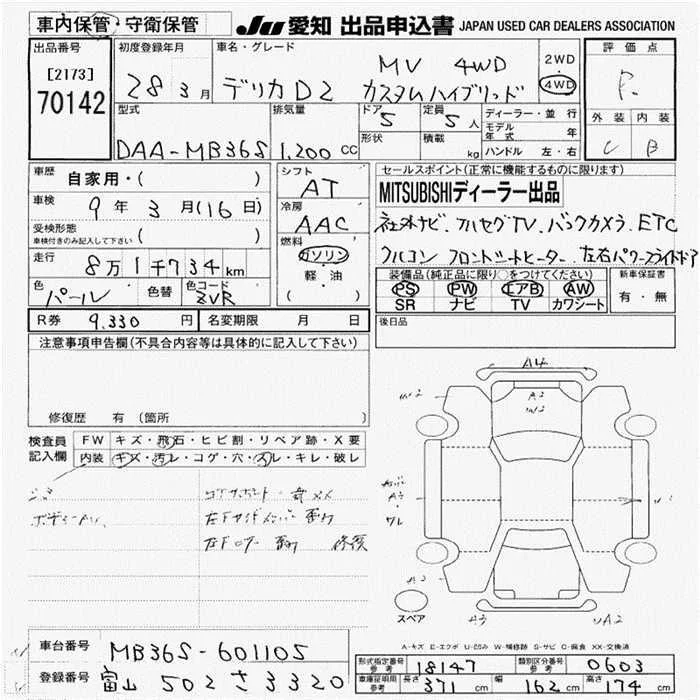 車内保管・守衛保管 JU 愛知 出品申込書 JAPAN USED CAR DEALERS ASSOCIATION
出品番号 初度登録年月 車名・グレード 評価点
[2173] 28 3月 デリカD2 MV 4WD 2WD
70142 カスタムハイブリッド 4WD
型式 排気量 ドア 5 定員 5人 ディーラー・並行 外装 内装
DAA-MB36S 1,200 CC 形状 積載 kg モデル年式 年 C B
ハンドル 左・右
車歴 自家用・( ) シフト AT セールスポイント(正常に機能するものに限ります)
車検 9年 3月(16日) 冷房 AAC MITSUBISHIディーラー出品
受検形態 ( ) 社外ナビ、フルセグTV、バックカメラ、ETC
車検付きのみ記入して下さい 燃料 ガソリン
走行 8万1千734km 軽・油 フルコン フロントシートヒーター、左右パワースライドドア
色 パール 色替 色コード ZVR ( ) 装備品(純正品に限り○をつけてください) 新車保証書
PS PW エアB AW 有・無
SR ナビ TV カワシート
R券 9,330円 名変期限 月 日 後日品
注意事項申告欄(不具合内容等は具体的に記入して下さい)
修復歴 有(箇所 )
A4
A2
W2
検査員記入欄 FW キズ・飛石・ヒビ割・リペア跡・X要
内装 キズ・汚レ・コゲ・穴・スレ・キレ・破レ
修復
スペア
A-キズ E-エクボ U-凹み W-補修跡 S-サビ C-腐食 XX-交換済
車台番号 MB36S-601105
登録番号 富山 502 さ 3320
形式指定番号 参考 18147 類別区分番号 参考 0603
車庫証明用 参考 長さ 371cm 幅 162cm 高さ 174cm